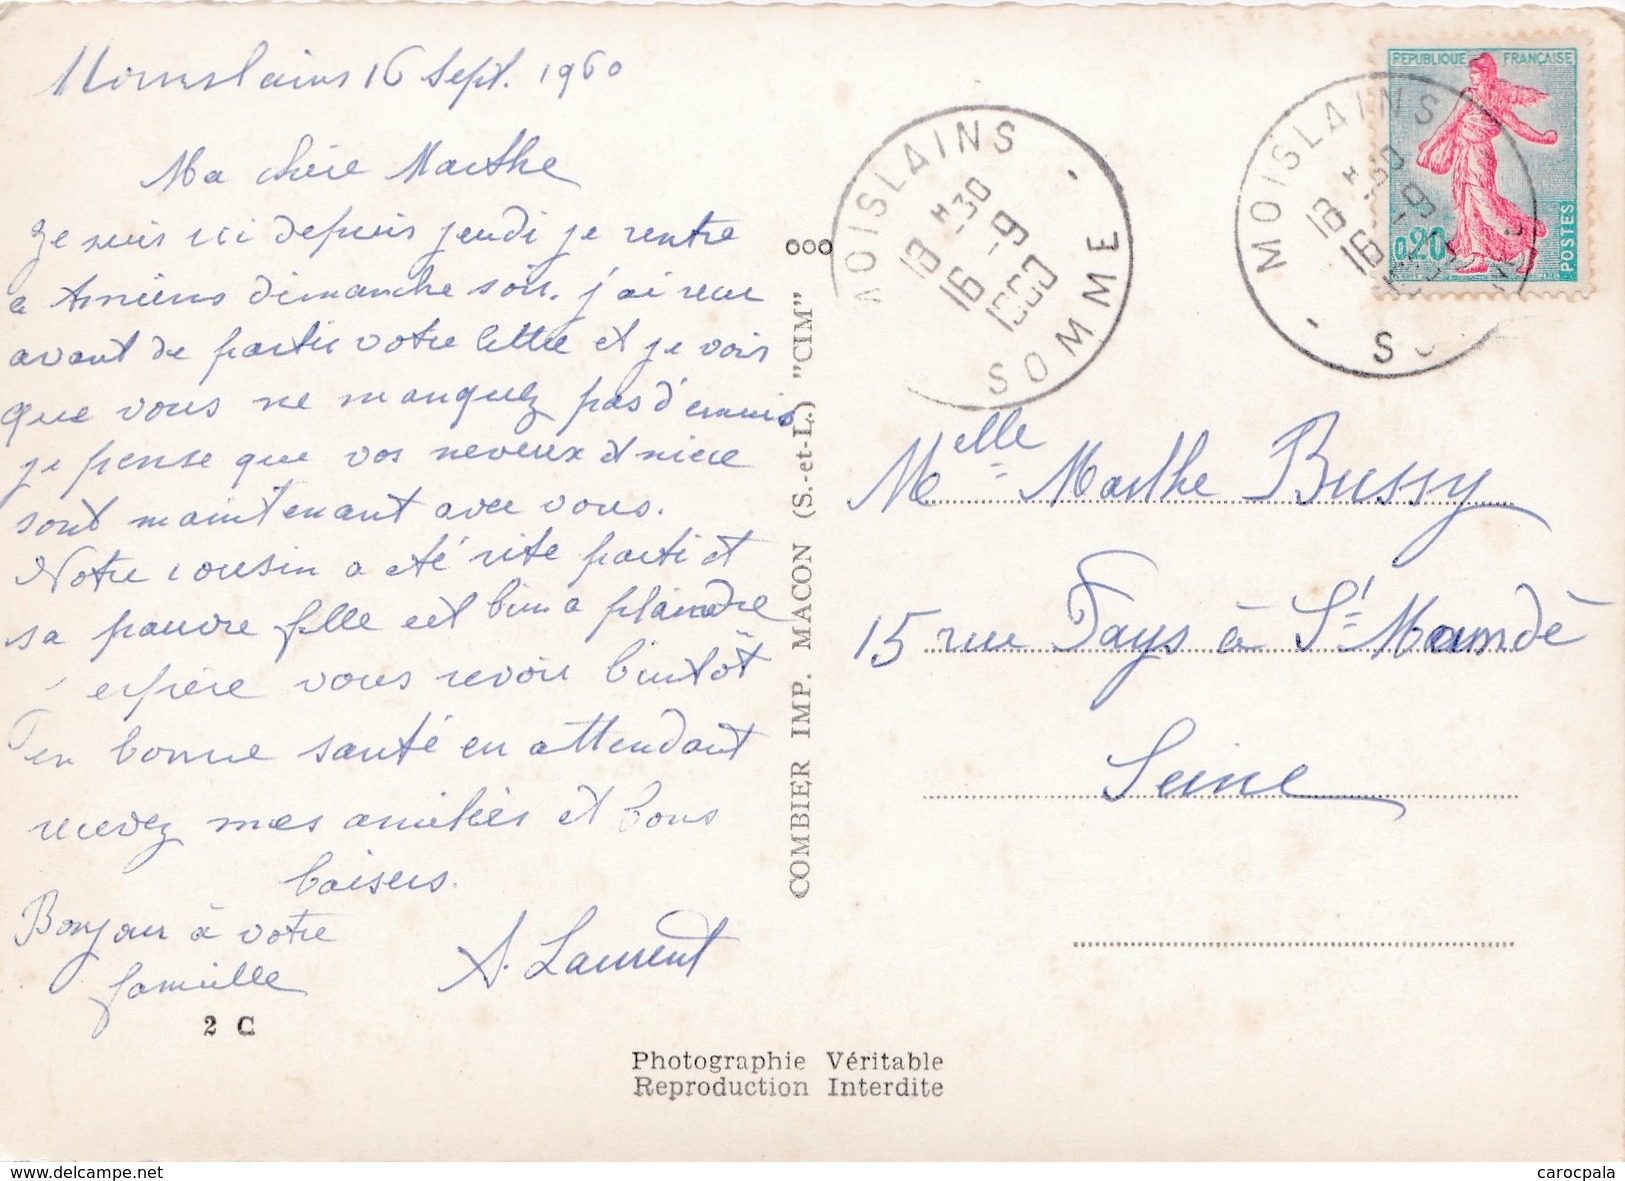 Moislains 16 Sept. 1960
Ma chère Marthe
Je suis ici depuis jeudi je rentre
a Amiens dimanche soir. j'ai recu
avant de partir votre lettre et je vois
que vous ne manquez pas d'ennuis
je pense que vos neveux et niece
sont maintenant avec vous.
Notre cousin a été vite parti et
sa pauvre fille est bien a plaindre
espère vous revoir bientôt
en bonne santé en attendant
recevez mes amitiés et bons
baisers.
Bonjour à votre
famille
A. Laurent
2 C
COMBIER IMP. MACON (S.-et-L.) "CIM"
Photographie Véritable
Reproduction Interdite
MOISLAINS
18 H 30
16 -9
1960
SOMME
REPUBLIQUE FRANÇAISE
0,20
POSTES
MOISLAINS
18 H 30
16 -9
Melle Marthe Bussy
15 rue Fays à St Mandé
Seine
www.delcampe.net
carocpala